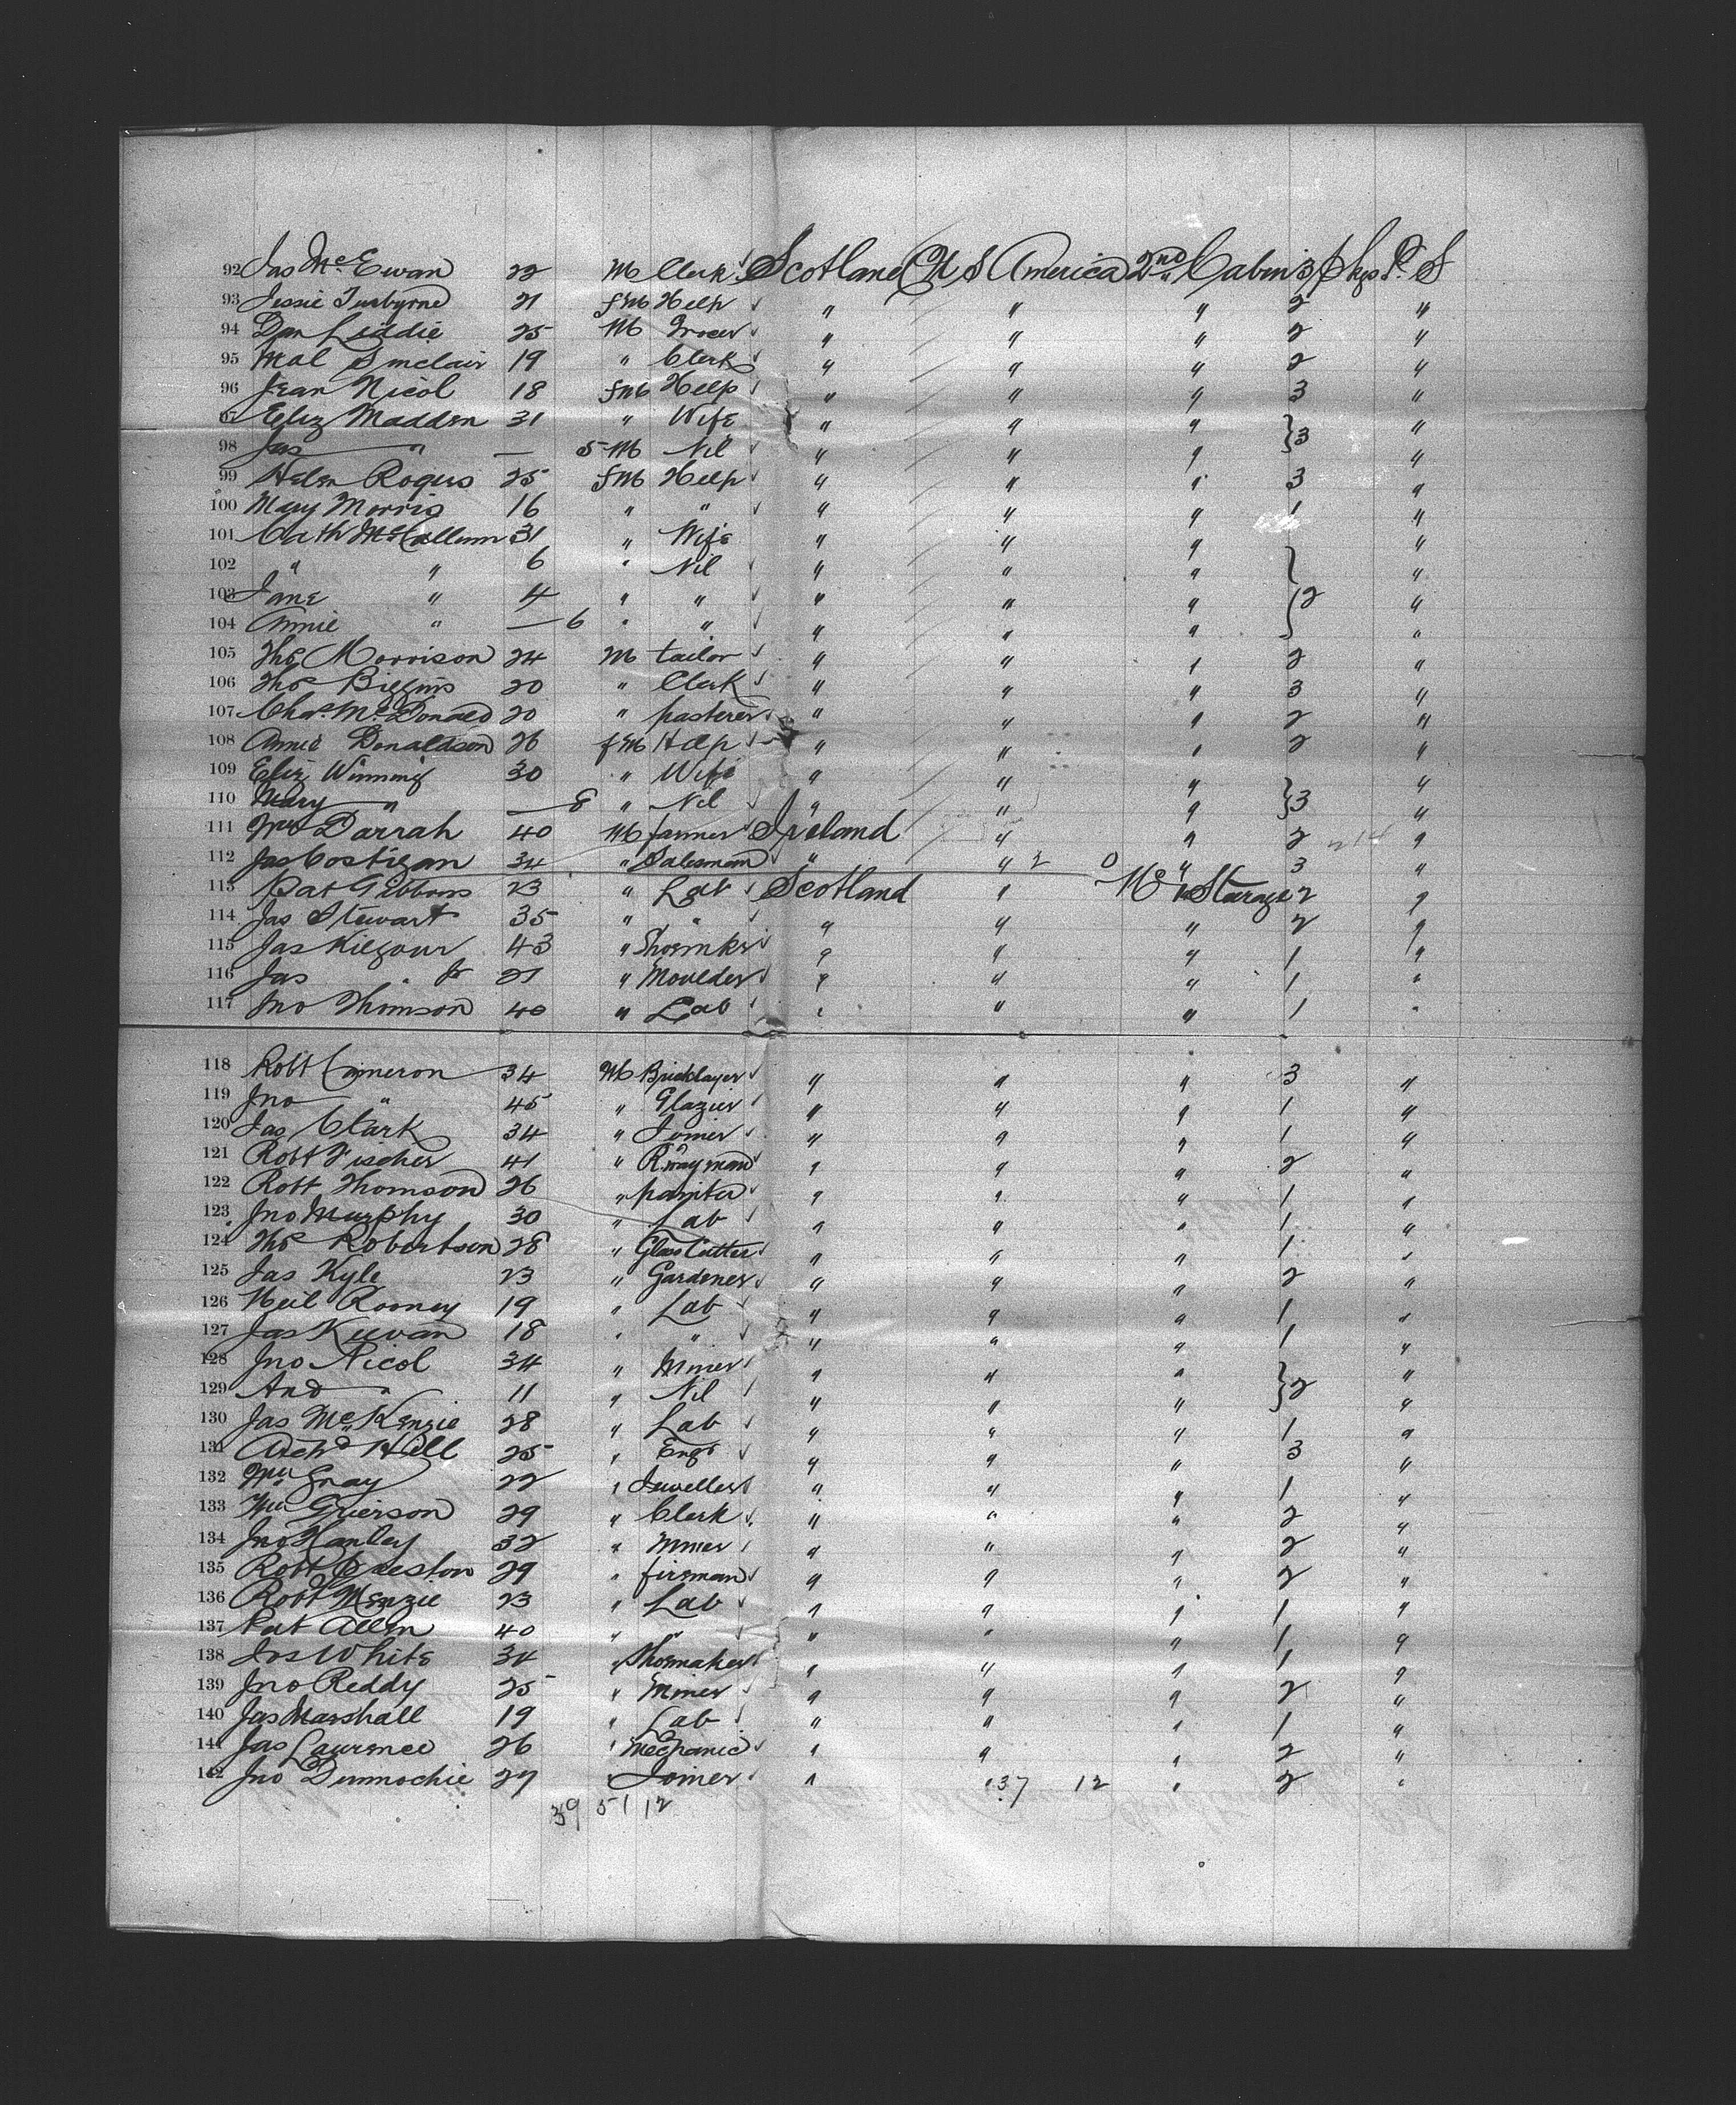 92 Jas McEwan 22 M Clerk Scotland U S America 2nd Cabin 3 pkgs P. S
93 Jessie 21 f M Help " " " 2 "
94 Dan Liddie 25 M Grocer " " " 2 "
95 Mal Sinclair 19 " Clerk " " " 2 "
96 Jean Nicol 18 f M Help " " " 3 "
97 Eliz Madden 31 " Wife " " " } 3 "
98 Jas " — 5 M Nil " " " "
99 Helen Rogers 25 f M Help " " " 3 "
100 Mary Morris 16 " " " " " 1 "
101 Cath McCallum 31 " Wife " " " "
102 " " 6 " Nil " " " } "
103 Jane " 4 " " " " " } 2 "
104 Annie " — 6 " " " " " "
105 Thos Morrison 24 M tailor " " " 2 "
106 Thos Biggins 20 " Clerk " " " 3 "
107 Chas. McDonald 20 " pasterer " " " 2 "
108 Annie Donaldson 26 f M Help " " " 2 "
109 Eliz Winning 30 " Wife " " " "
110 Mary " — 8 " Nil " " " } 3 "
111 Wm Darrah 40 M farmer Ireland " " 2 "
112 Jas Costigan 34 " Salesman " " 2 0 " 3 "
113 Pat Gibbons 23 " Lab Scotland " Steerage 2 "
114 Jas Stewart 35 " " " " " 2 "
115 Jas Kilgour 43 " Shoemkr " " " 1 "
116 Jas " Jr 21 " Moulder " " " 1 "
117 Jno Thomson 40 " Lab " " " 1 "
118 Robt Cameron 34 M Bricklayer " " " 3 "
119 Jno " 45 " Glazier " " " 1 "
120 Jas Clark 34 " Joiner " " " 1 "
121 Robt Fischer 41 " R.wayman " " " 2 "
122 Robt Thomson 26 " painter " " " 1 "
123 Jno Murphy 30 " Lab " " " 1 "
124 Thos Robertson 28 " Glass Cutter " " " 1 "
125 Jas Kyle 23 " Gardener " " " 2 "
126 Neil Rooney 19 " Lab " " " 1 "
127 Jas Keevan 18 " " " " " 1 "
128 Jno Nicol 34 " Miner " " " "
129 And " 11 " Nil " " " } 2 "
130 Jas McKenzie 28 " Lab " " " 1 "
131 Archd Hill 25 " Engr " " " 3 "
132 Wm Gray 22 " Jeweller " " " 1 "
133 Wm Grierson 29 " Clerk " " " 2 "
134 Jno Hanley 32 " Miner " " " 2 "
135 Robt 29 " fireman " " " 2 "
136 Robt Menzie 23 " Lab " " " 1 "
137 Pat Allen 40 " " " " " 1 "
138 Jos White 34 " Shoemaker " " " 1 "
139 Jno Reddy 25 " Miner " " " 2 "
140 Jas Marshall 19 " Lab " " " 1 "
141 Jas Laurence 26 " Mechanic " " " 2 "
142 Jno Dunnochie 27 " Joiner " " 37 12 " 2 "
39 51 12